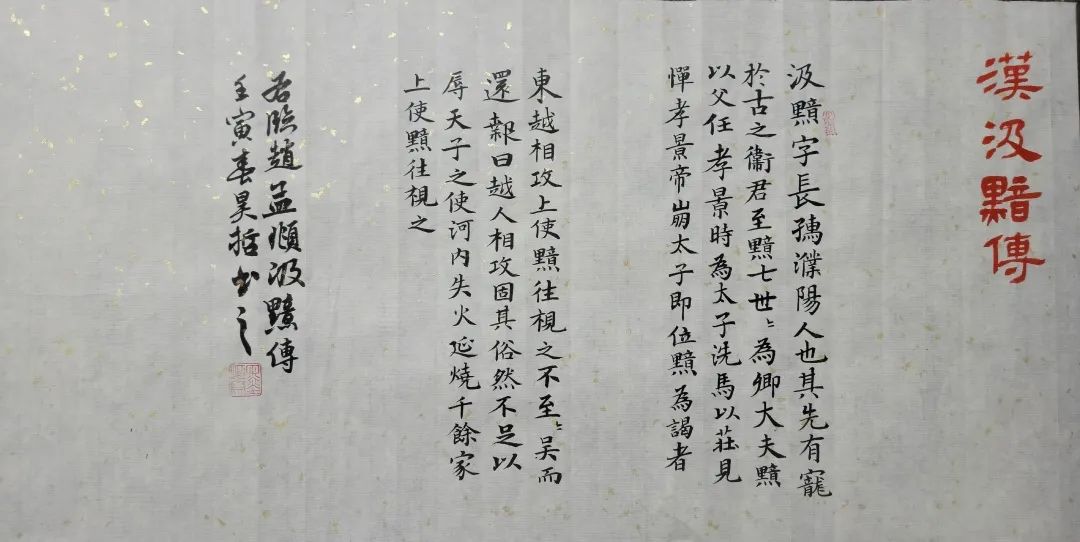 漢汲黯傳
汲黯字長孺濮陽人也其先有寵
於古之衞君至黯七世〻為卿大夫黯
以父任孝景時為太子洗馬以莊見
憚孝景帝崩太子即位黯為謁者
東越相攻上使黯往視之不至〻吴而
還報曰越人相攻固其俗然不足以
辱天子之使河内失火延燒千餘家
上使黯往視之
右臨趙孟頫汲黯傳
壬寅春昊哲书之